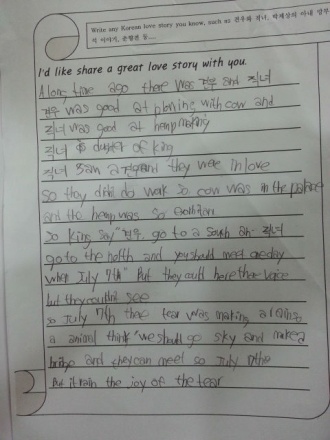 Write any Korean love story you know, such as 견우와 직녀, 박제상의 아내
I'd like share a great love story with you.
A long time ago there was 견우 and 직녀
견우 was good at planing with cow and
직녀 was good at hemp making
직녀 is of king
직녀 saw a 견우 and they were in love
So they didnt do work so cow was in the palace
and the hemp was so
So king say "견우. go to a south an- 직녀
go to the noth and you should meet oneday
when July 7th" But they could here there voice
but they couldnt see
so July 7th thee tear was making a
a animal think "we should go sky and make a
bridge and they can meet so July
But it rain the joy of the tear